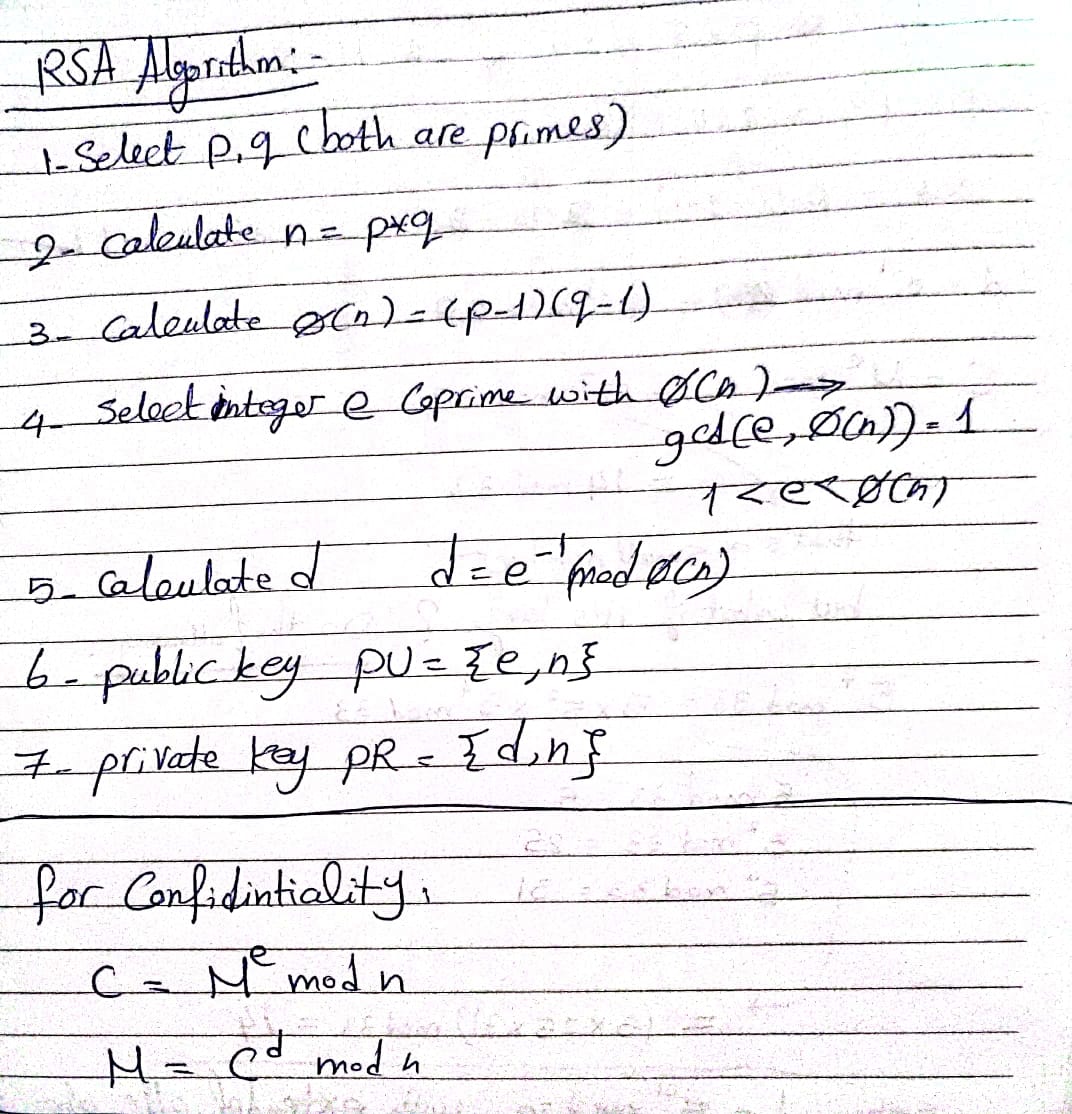 RSA Algorithm:-
1- Select p,q (both are primes)
2- Calculate n = p*q
3- Calculate ø(n) = (p-1)(q-1)
4- Select integer e Coprime with ø(n) →
gcd(e, ø(n)) = 1
1 < e < ø(n)
5- Calculate d d = e⁻¹ mod ø(n)
6- public key PU = {e,n}
7- private key PR = {d,n}
for Confidintiality,
C = Mᵉ mod n
M = Cᵈ mod n